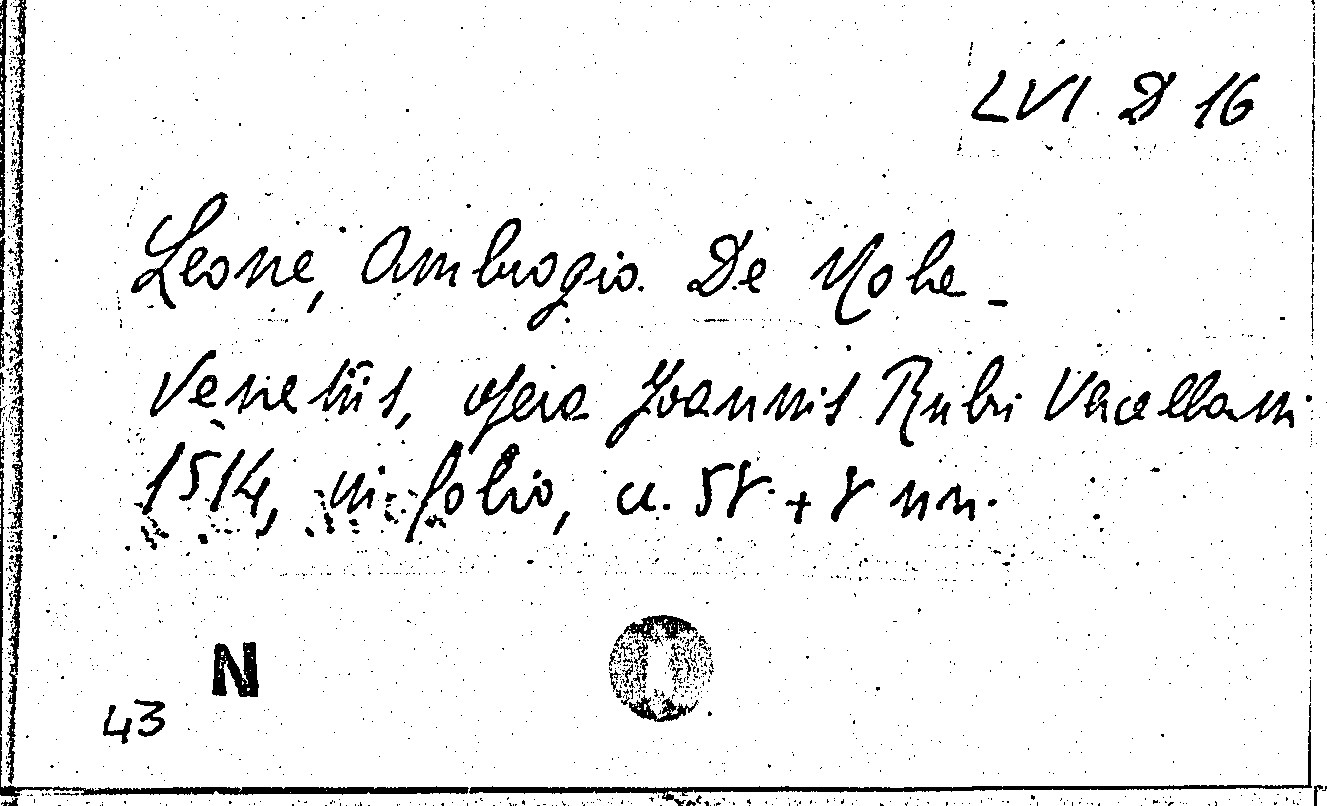 LVI D 16
Leone, Ambrogio. De Nola -
Venetiis, opera Joannis Rubri Vercellani
1514, in folio, cc. 58 + 8 nn.
N
43